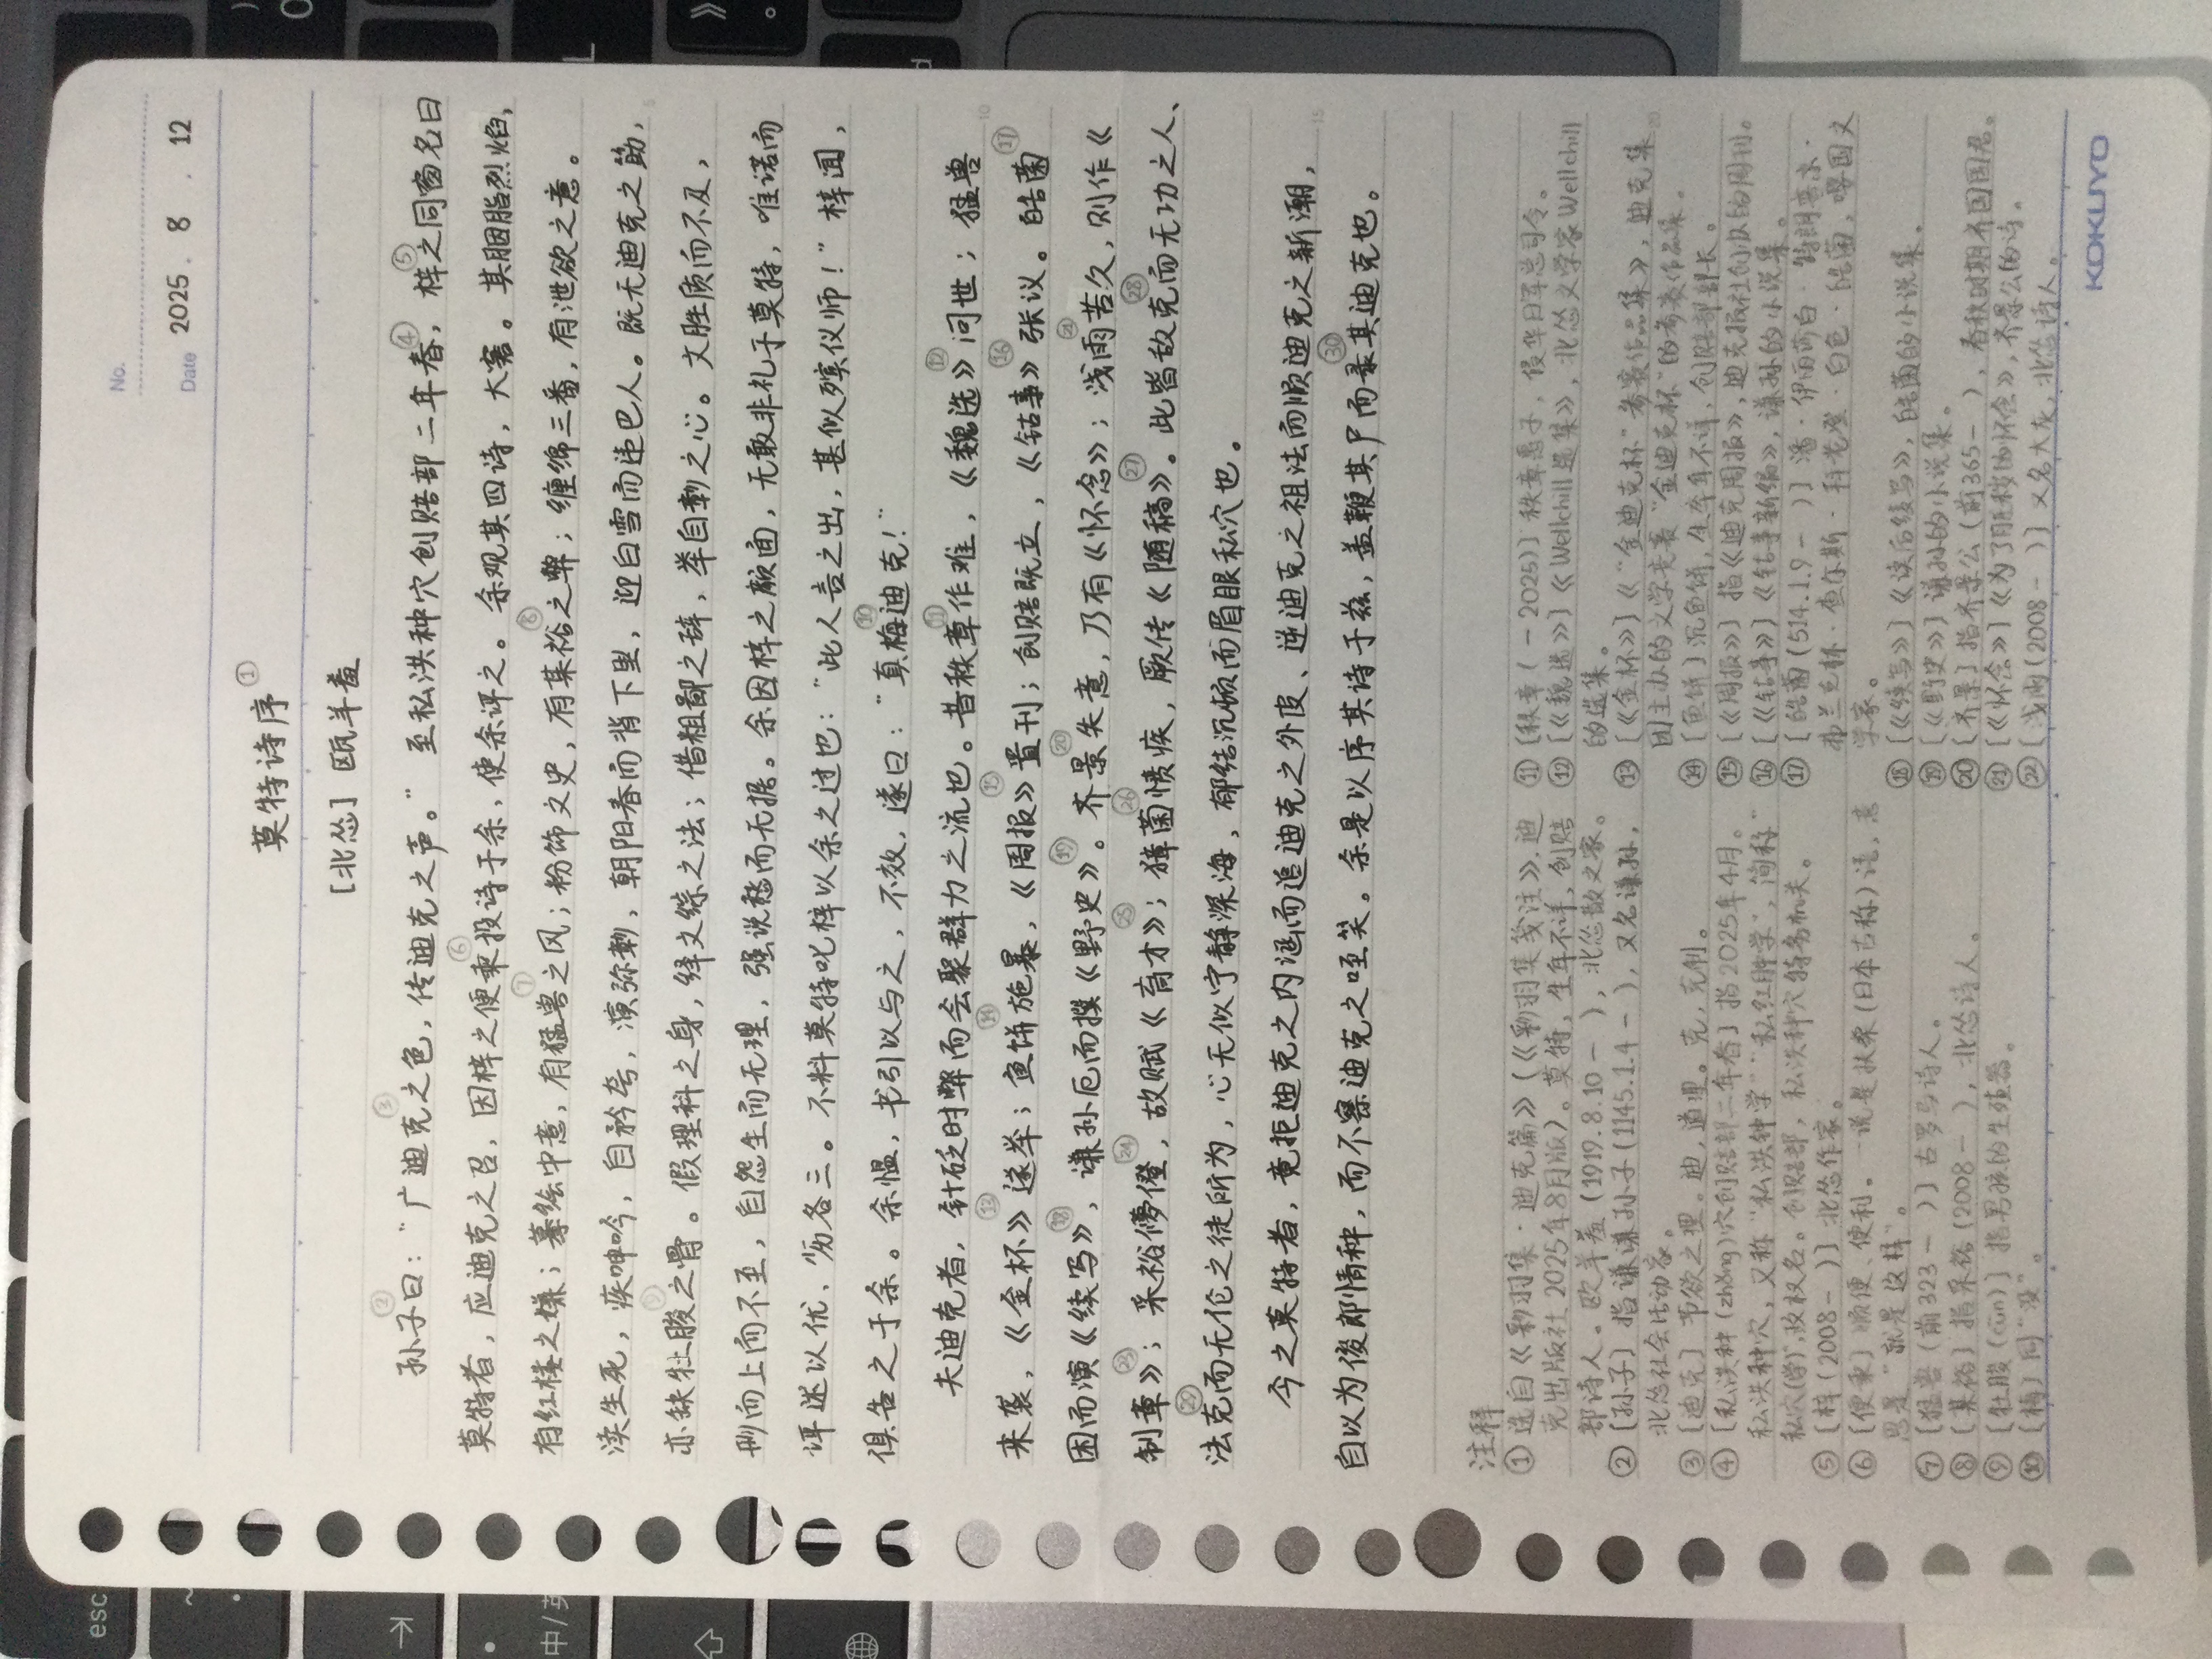 esc
中/英
No.
Date 2025 . 8 . 12
莫特诗序①
[北怂] 瓯羊羞
孙子②曰：“广迪克③之色，传迪克之声。” 至私洪种穴创赔部二年春④，梓⑤之同窗名曰
莫特者，应迪克之召，因梓之便乘⑥投诗于余，使余评之。余观其四诗，大骇。其胭脂烈焰，
有红楼之嫌；摹绘中意，有猛兽⑦之风；粉饰文史，有某裕⑧之弊；缠绵三番，有泄欲之意。
渎生死，疾呻吟，自矜夸，演弥彰，朝阳春而背下里，迎白雪而违巴人。既无迪克之筋，
亦缺牡朘⑨之骨。假理科之身，绎文综之法；借粗鄙之辞，举自彰之心。文胜质而不及，
形而上而不至，自怨生而无理，强说愁而无据。余因梓之颜面，无敢非礼于莫特，唯诺而
评述以优、劣各三。不料莫特叱梓以余之过也：“此人言之出，甚似殡仪师！” 梓闻，
俱告之于余。余愠，书引以与之，不效，遂曰：“真梅⑩迪克！”
夫迪克者，针砭时弊而会聚群力之流也。昔秩章⑪作难，《魏选》⑫问世；猛兽
来袭，《金杯》⑬遂举；鱼饼⑭施暴，《周报》⑮置刊；创赔既立，《钴事》⑯张议。皓菌⑰
困而演《续写》⑱，谦孙厄而撰《野史》⑲。齐景⑳失意，乃有《怀念》㉑；浅雨苦久，则作《
制章》㉓；采裕㉔儚僜，故赋《育才》㉕；獐菌㉖愤疾，厥传《随稿》㉗。此皆敌克㉘而无功之人、
法克㉙而无伦之徒所为，心无似宁静深海，郁结沉顿而眉眼私穴也。
今之莫特者，竟拒迪克之内涵而追迪克之外皮、逆迪克之祖法而顺迪克之新潮，
自以为俊郎情种，而不察迪克之咥笑。余是以序其诗于兹，盖鞭其尸而录㉚其迪克也。
注释
① 选自《彩羽集·迪克篇》（《彩羽集笺注》，迪
克出版社2025年8月版）。莫特，生年不详，创赔
部诗人。欧羊羞（1919.8.10 - ），北怂散文家。
② [孙子] 指谦谦孙子（1145.1.4 - ），又名谦孙，
北怂社会活动家。
③ [迪克] 节欲之理。迪，道理。克，克制。
④ [私洪种（zhǒng）穴创赔部二年春] 指2025年4月。
私洪种穴，又称“私洪钟学”“私红肿学”，简称“
私穴(学)”，政权名。创赔部，私洪种穴特务机关。
⑤ [梓（2008- ）] 北怂作家。
⑥ [便乘] 顺便、便利。一说是扶桑（日本古称）语，意
思是“就是这样”。
⑦ [猛兽（前323- ）] 古罗马诗人。
⑧ [某裕] 指采裕（2008- ），北怂诗人。
⑨ [牡朘（cuī）] 指男孩的生殖器。
⑩ [梅] 同“没”。
⑪ [秩章（ -2025）] 秩章惠子，侵华日军总司令。
⑫ [《魏选》]《Wellchill选集》，北怂文学家Wellchill
的选集。
⑬ [《金杯》]《“金迪克杯”参赛作品集》，迪克集
团主办的文学竞赛“金迪克杯”的参赛作品集。
⑭ [鱼饼] 沉鱼饼，生卒年不详，创赔部部长。
⑮ [《周报》] 指《迪克周报》，迪克报社创办的周刊。
⑯ [《钴事》]《钴事新编》，谦孙的小说集。
⑰ [皓菌（514.1.9 - ）] 潘·伊丽莎白·特朗普京·
弗兰克林·查尔斯·科莱登·白色·皓菌，嘤国文
学家。
⑱ [《续写》]《读后续写》，皓菌的小说集。
⑲ [《野史》] 谦孙的小说集。
⑳ [齐景] 指齐景公（前365- ），春秋时期齐国国君。
㉑ [《怀念》]《为了的怀念》，齐景公的诗。
㉒ [浅雨（2008- ）] 又名大灰，北怂诗人。
KOKUYO